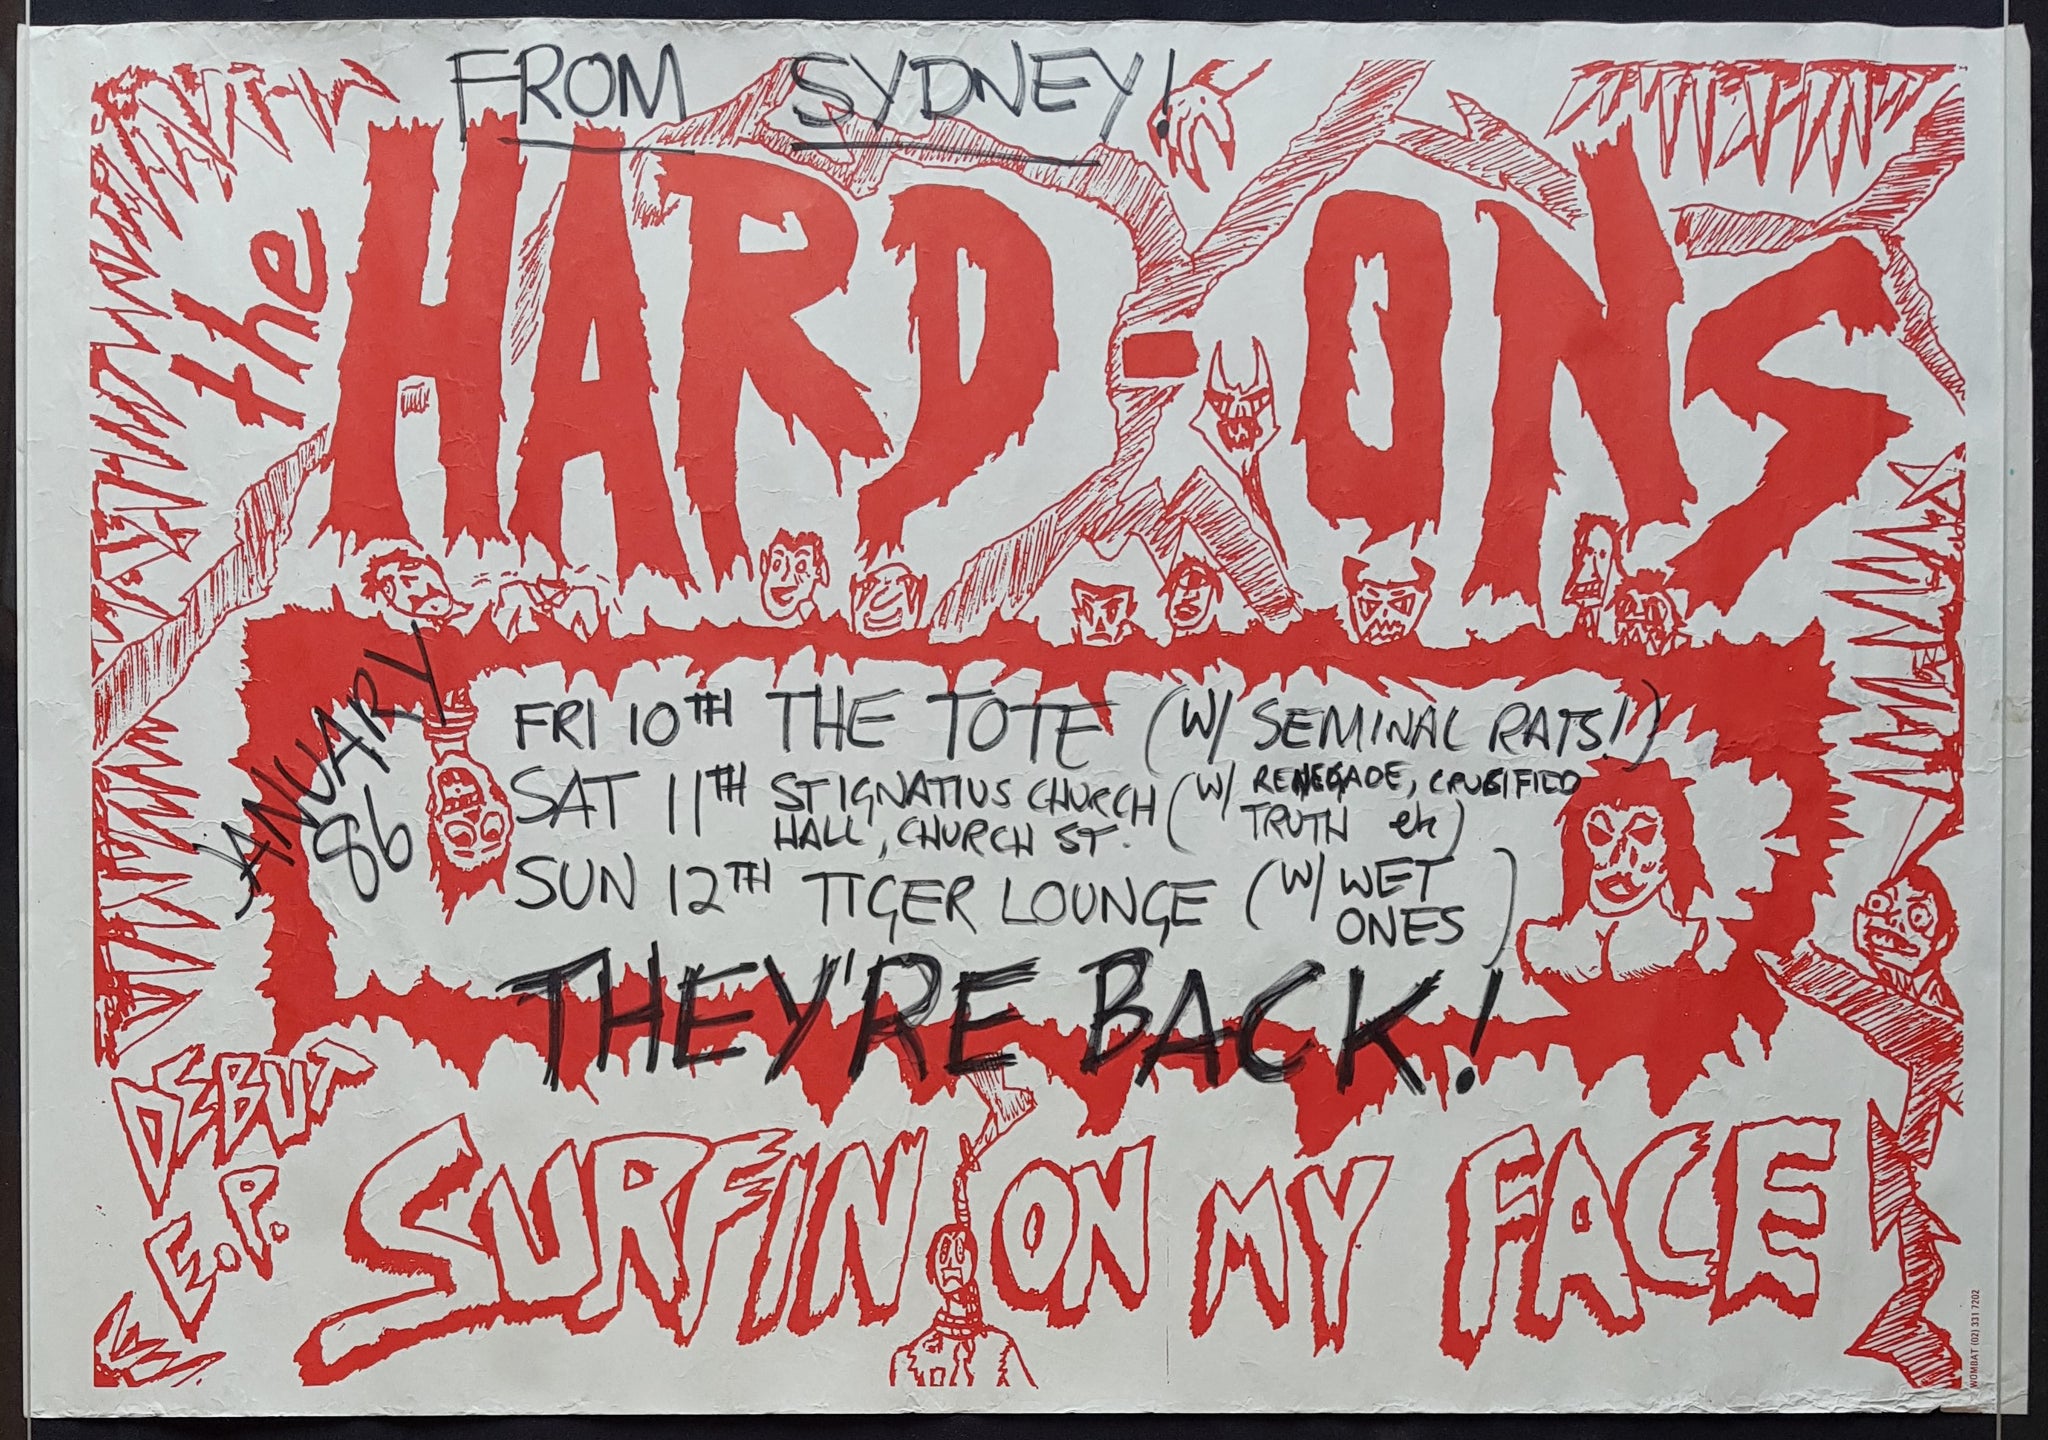 FROM SYDNEY!
the HARD-ONS
JANUARY
86
FRI 10TH THE TOTE (W/ SEMINAL RATS!)
SAT 11TH ST IGNATIUS CHURCH HALL, CHURCH ST. (W/ RENEGADE, CRUSIFIED TRUTH etc)
SUN 12TH TIGER LOUNGE (W/ WET ONES)
THEY'RE BACK!
DEBUT
E.P.
SURFIN ON MY FACE
WOMBAT (02) 331 7202